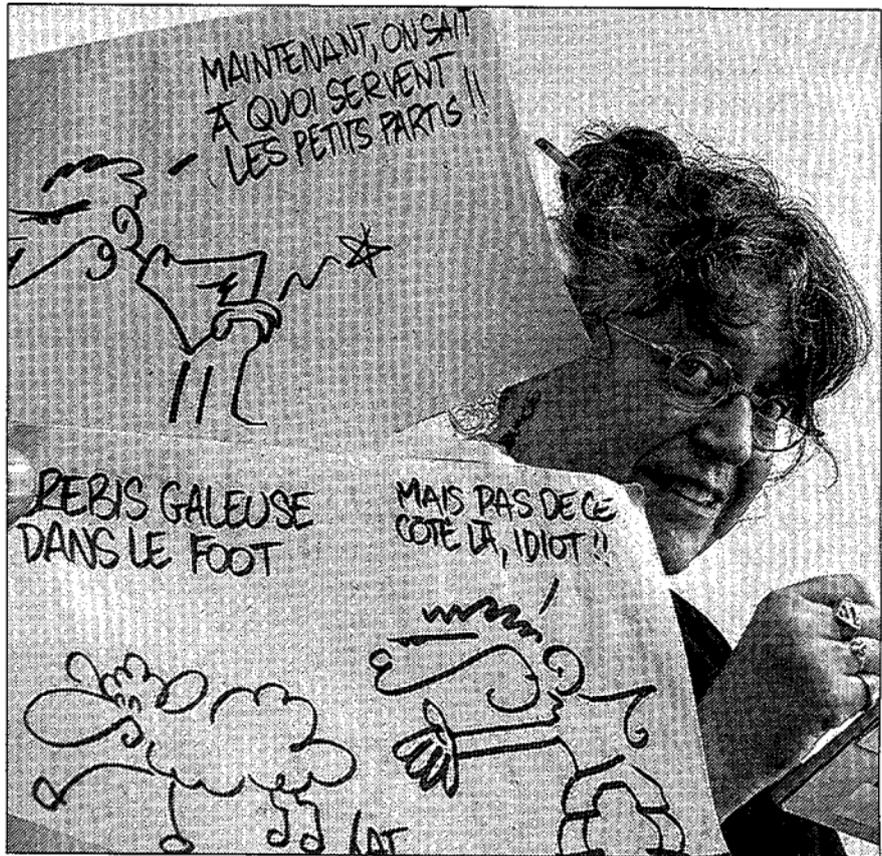 MAINTENANT, ON SAIT
À QUOI SERVENT
LES PETITS PARTIS !!
REBIS GALEUSE
DANS LE FOOT
MAIS PAS DE CE
COTÉ LÀ, IDIOT !!